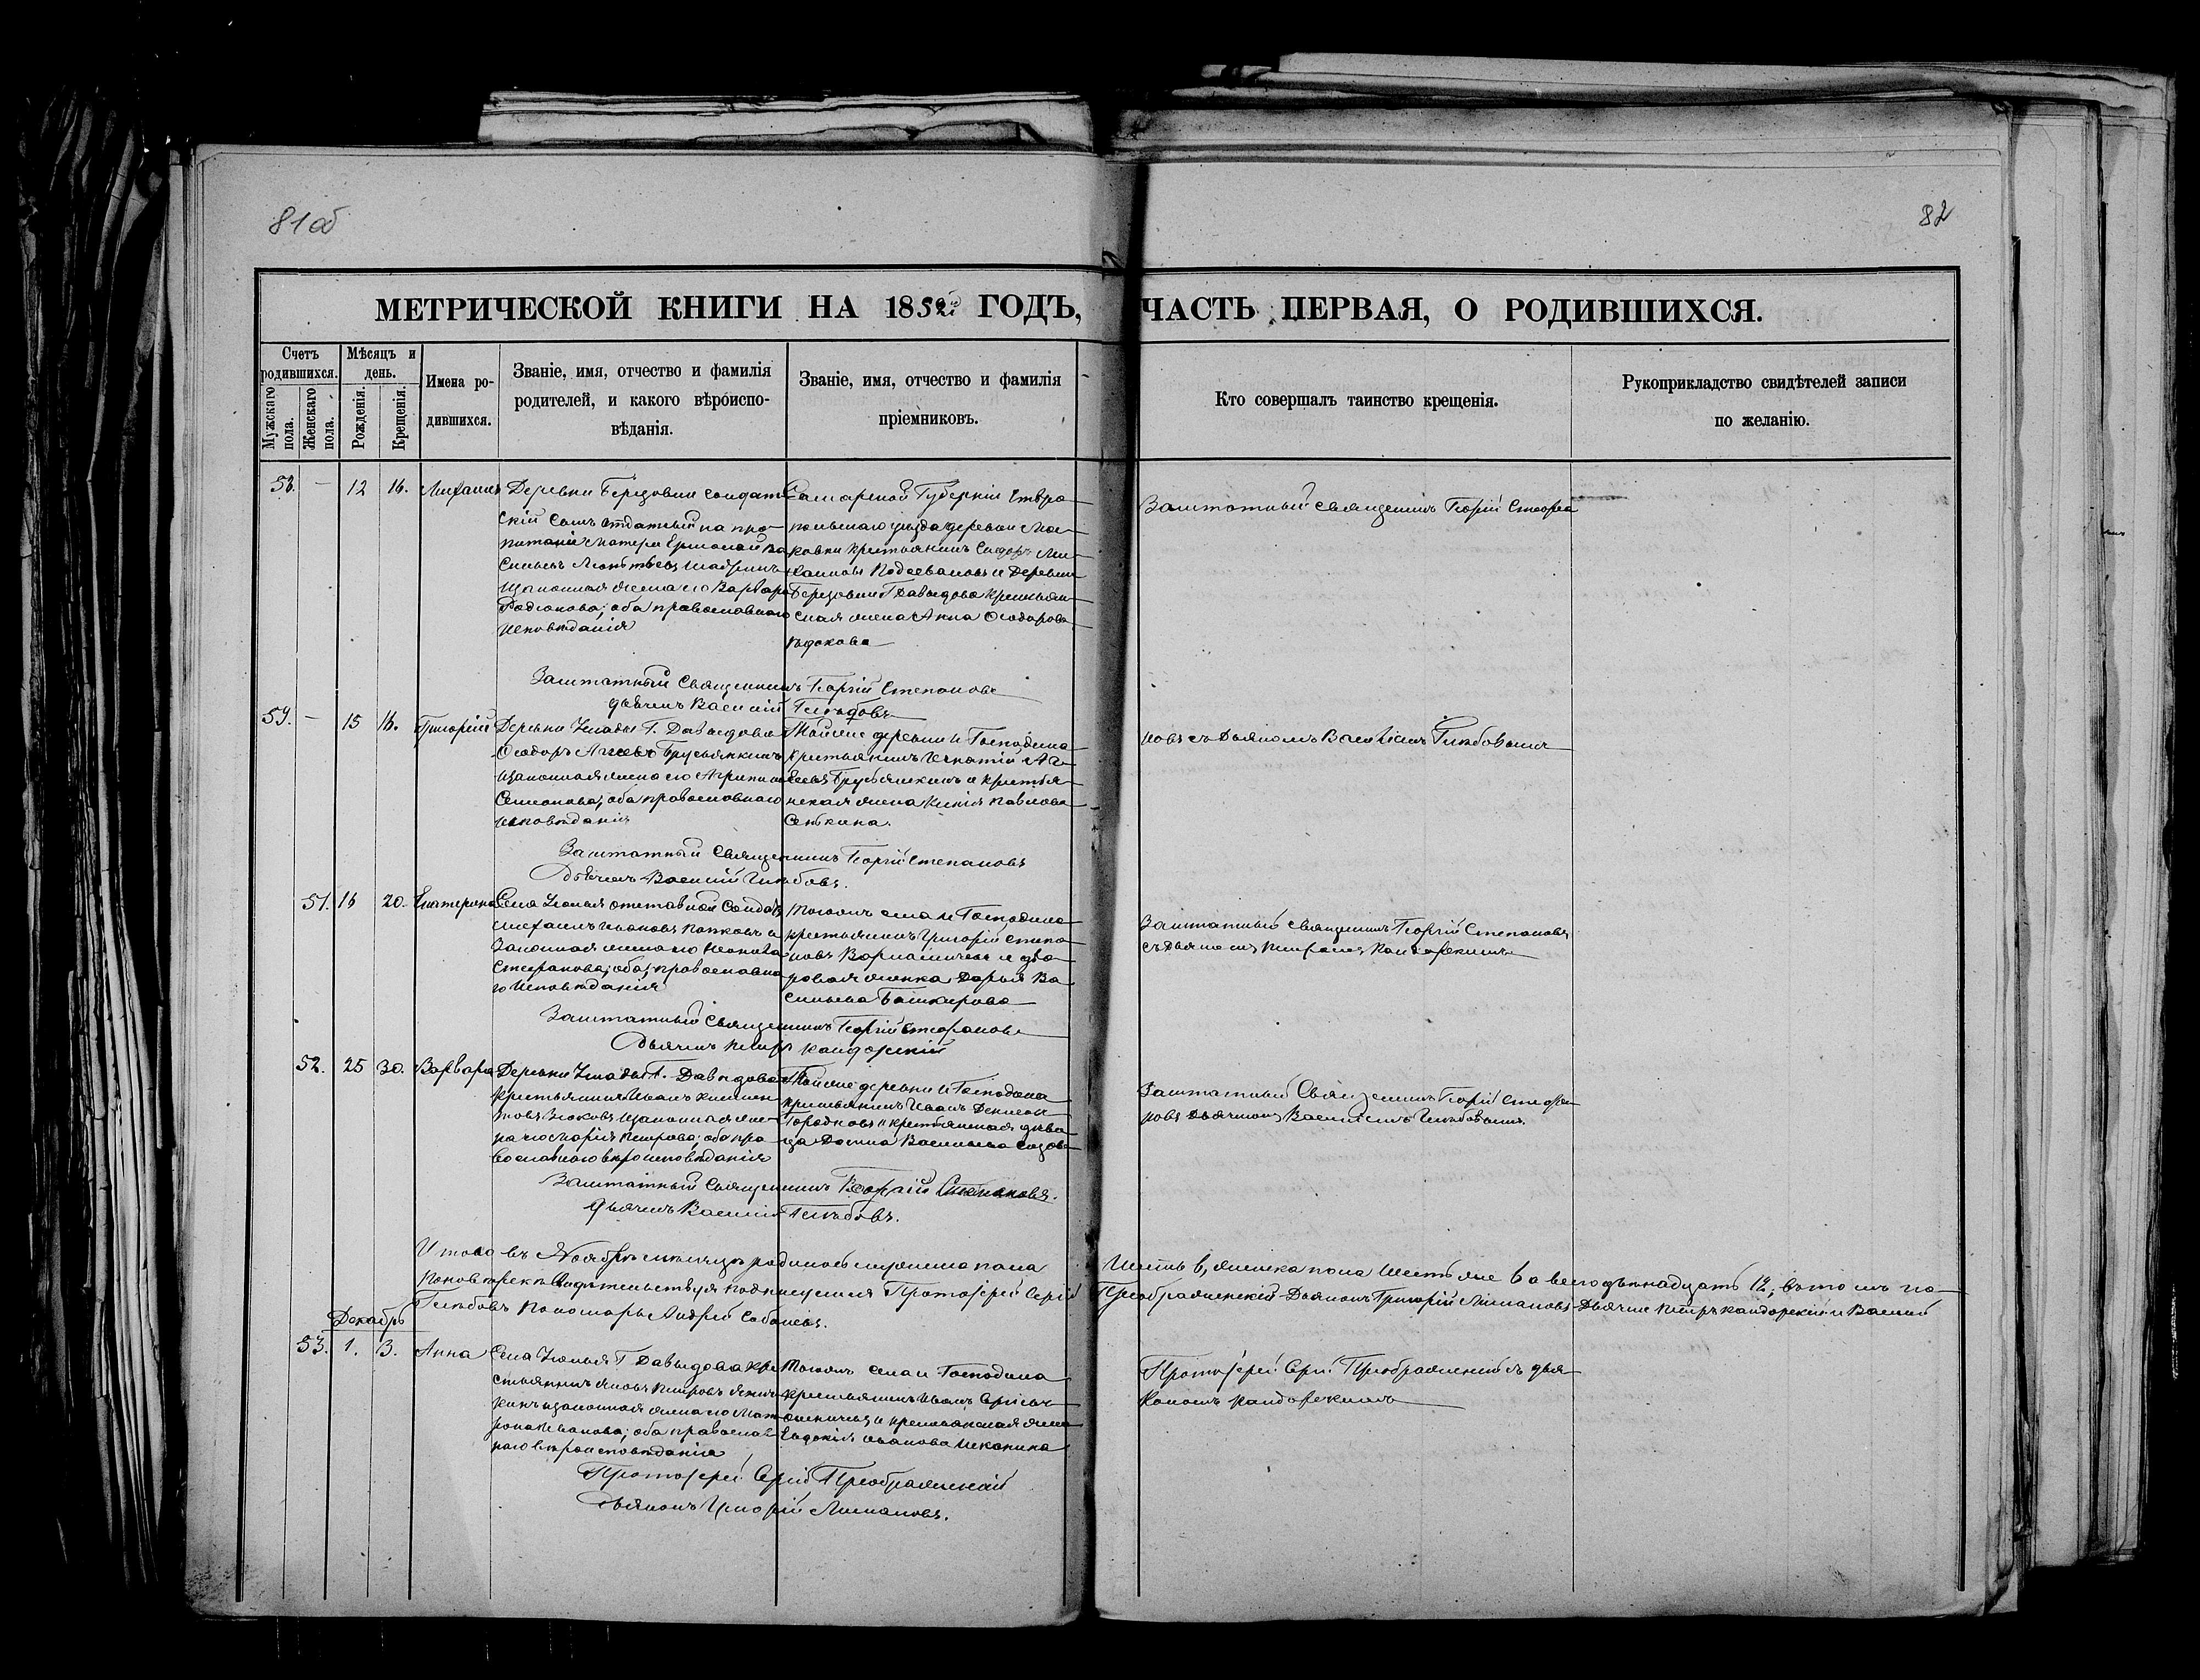 81об
82
МЕТРИЧЕСКОЙ КНИГИ НА 1852 ГОДЪ, ЧАСТЬ ПЕРВАЯ, О РОДИВШИХСЯ.
Счетъ родившихся.
Мужскаго пола.
Женскаго пола.
Мѣсяцъ и день.
Рожденія.
Крещенія.
Имена родившихся.
Званіе, имя, отчество и фамилія родителей, и какого вѣроисповѣданія.
Званіе, имя, отчество и фамилія пріемниковъ.
Кто совершалъ таинство крещенія.
Рукоприкладство свидѣтелей записи по желанію.
58. – 12 16. Михаилъ
Деревни Березовки солдат
скій сынъ отданный на про
питаніе матери Ермолай Ва
сильевъ
изаконная жена его Варвара
Родіонова; оба православнаго
исповѣданія
Самарской Губерніи Ставро
польскаго уѣзда деревни
крестьянинъ
и Деревни
Березовки Г. Давыдова крестьян
ская жена Анна Ѳеодорова
Заштатный священникъ Георгій Стефа
Заштатный Священникъ Георгій Степановъ
Дьячекъ Василій Глѣбовъ
59. – 15 16. Григорій
Деревни Г. Давыдова
Ѳеодоръ
изаконная жена его Агрипина
Семенова; оба православнаго
исповѣданія
Тойже деревни и Господина
крестьянинъ Игнатій
и крестья
нская жена Павлова
Сенькина.
новъ съ Дьякомъ Василіемъ Глѣбовымъ
Заштатный Священникъ Георгій Степановъ
Дьячекъ Василій Глѣбовъ.
51. 16 20. Екатерина
Села отставной Солдатъ
Михаилъ Ивановъ Попковъ и
Законная жена его
Стефанова; оба православна
го Исповѣданія
Тогожъ села и Господина
крестьянинъ Григорій Степа
новъ и дво
ровая женка Дарья Ва
сильева Башкирова
Заштатный священникъ Георгій Степановъ
съ дьячкомъ Петромъ Кандорскимъ
Заштатный Священникъ Георгій Стефановъ
Дьячекъ Петръ Кандорскій
52. 25 30. Варвара
Деревни Г. Давыдова
Крестьянинъ Иванъ
изаконная же
на его Марія Петрова; оба пра
вославнаго вѣроисповѣданія
Тойже деревни и Господина
крестьянинъ Иванъ Денисовъ
Городновъ и крестьянская дѣви
ца Домна Васильева
Заштатный Священникъ Георгій Стефа
новъ Дьячкомъ Василіемъ Глѣбовымъ.
Заштатный Священникъ Георгій Степановъ.
Дьячекъ Василій Глѣбовъ.
Итого въ Ноябрѣ мѣсяцѣ родилось мужеска пола Шесть 6, женска пола Шесть же 6 а всего двѣнадцать 12; въ томъ по
повѣркѣ Свидѣтельствуя подписуемся Протоіерей Сергій Преображенскій Дьяконъ Григорій Лимановъ Дьячки Петръ Кандорскій и Василій
Глѣбовъ Пономарь Андрей
Декабрь
53. 1. 3. Анна
Села Г. Давыдова кре
стьянинъ Яковъ Петровъ
изаконная жена его Мат
рона Иванова; оба православ
наго вѣроисповѣданія
Тогожъ села и Господина
крестьянинъ Иванъ Сергѣевъ
и крестьянская жена
Евдокія Иванова
Протоіерей Сергій Преображенскій съ дья
кономъ Кандорскимъ
Протоіерей Сергій Преображенскій
Дьяконъ Григорій Лимановъ.